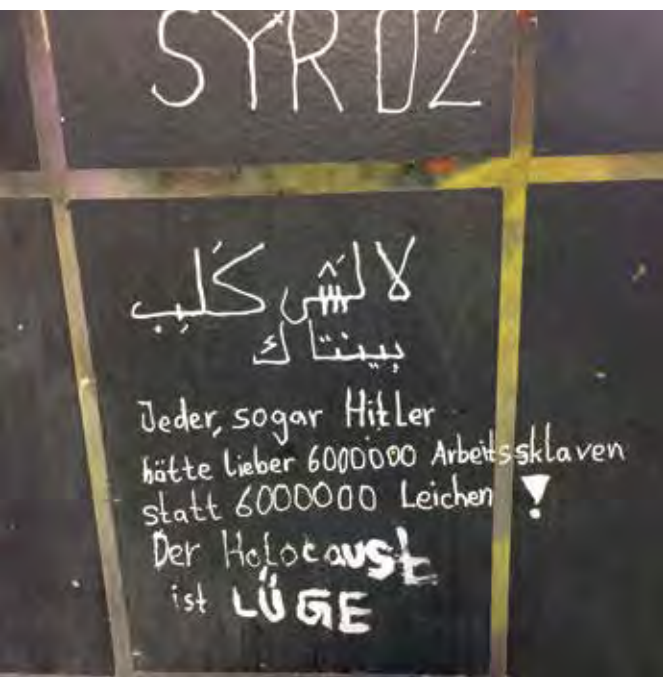 SYR 02
لا لش كَلِب
بينتا ك
Jeder, sogar Hitler
hätte lieber 6000000 Arbeitssklaven
statt 6000000 Leichen !
Der Holocaust
ist LÜGE